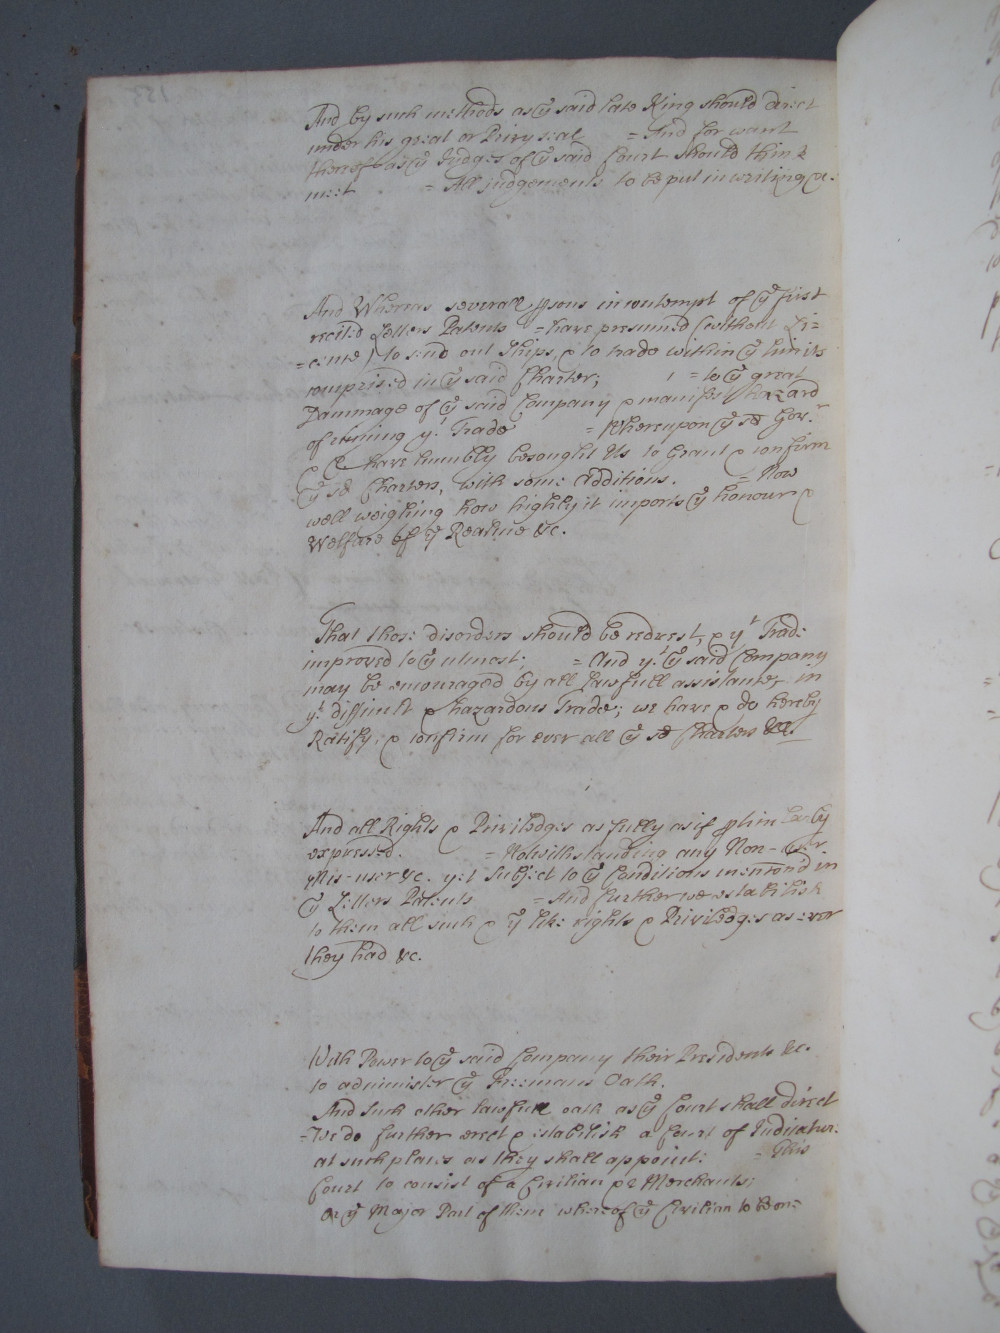 And by such methods as yͤ said late King should direct
under his great or Privy seal = And for want
thereof as yͤ Judges of yͤ said Court should think
meet = All judgements to be put in writing &c.
And Whereas severall psons in contempt of yͤ first
recited Letters Patents = have presumed (without Li=
=cence) to send out Ships, & to trade within yͤ limits
comprised in yͤ said Charter; = to yͤ great
Dammage of yͤ said Company & manifest hazzard
of ruining yͭ Trade = Whereupon yͤ sd Govͬ
& C have humbly besought Us to Grant & confirm
yͤ sd Charters, with some Additions. = Now
well weighing how highly it imports yͤ honour &
Welfare of yͤ Realme &c.
That those disorders should be redrest, & yͭ Trade
improved to yͤ utmost; = And yͭ yͤ said Company
may be encouraged by all lawfull assistances in
yͭ difficult & hazardous Trade; we have & do hereby
Ratify, & confirm for ever all yͤ sd Charters &c.
And all Rights & Priviledges as fully as if pticularly
expressed. = Notwithstanding any Non-user
Mis-user &c. yet Subject to yͤ Conditions mentiond in
yͤ Letters Patents = And further we establish
to them all such & yͤ like rights & Priviledges as ever
they had &c.
With Power to yͤ said Company their Presidents &c.
to administer yͤ Freemans Oath.
And such other lawfull oath as yͤ Court shall direct
=We do further erect & establish a Court of Judicature
at such places as they shall appoint: = This
Court to consist of a Civilian & 2 Merchants;
Or yͤ Major Part of them whereof yͤ Civilian to be one